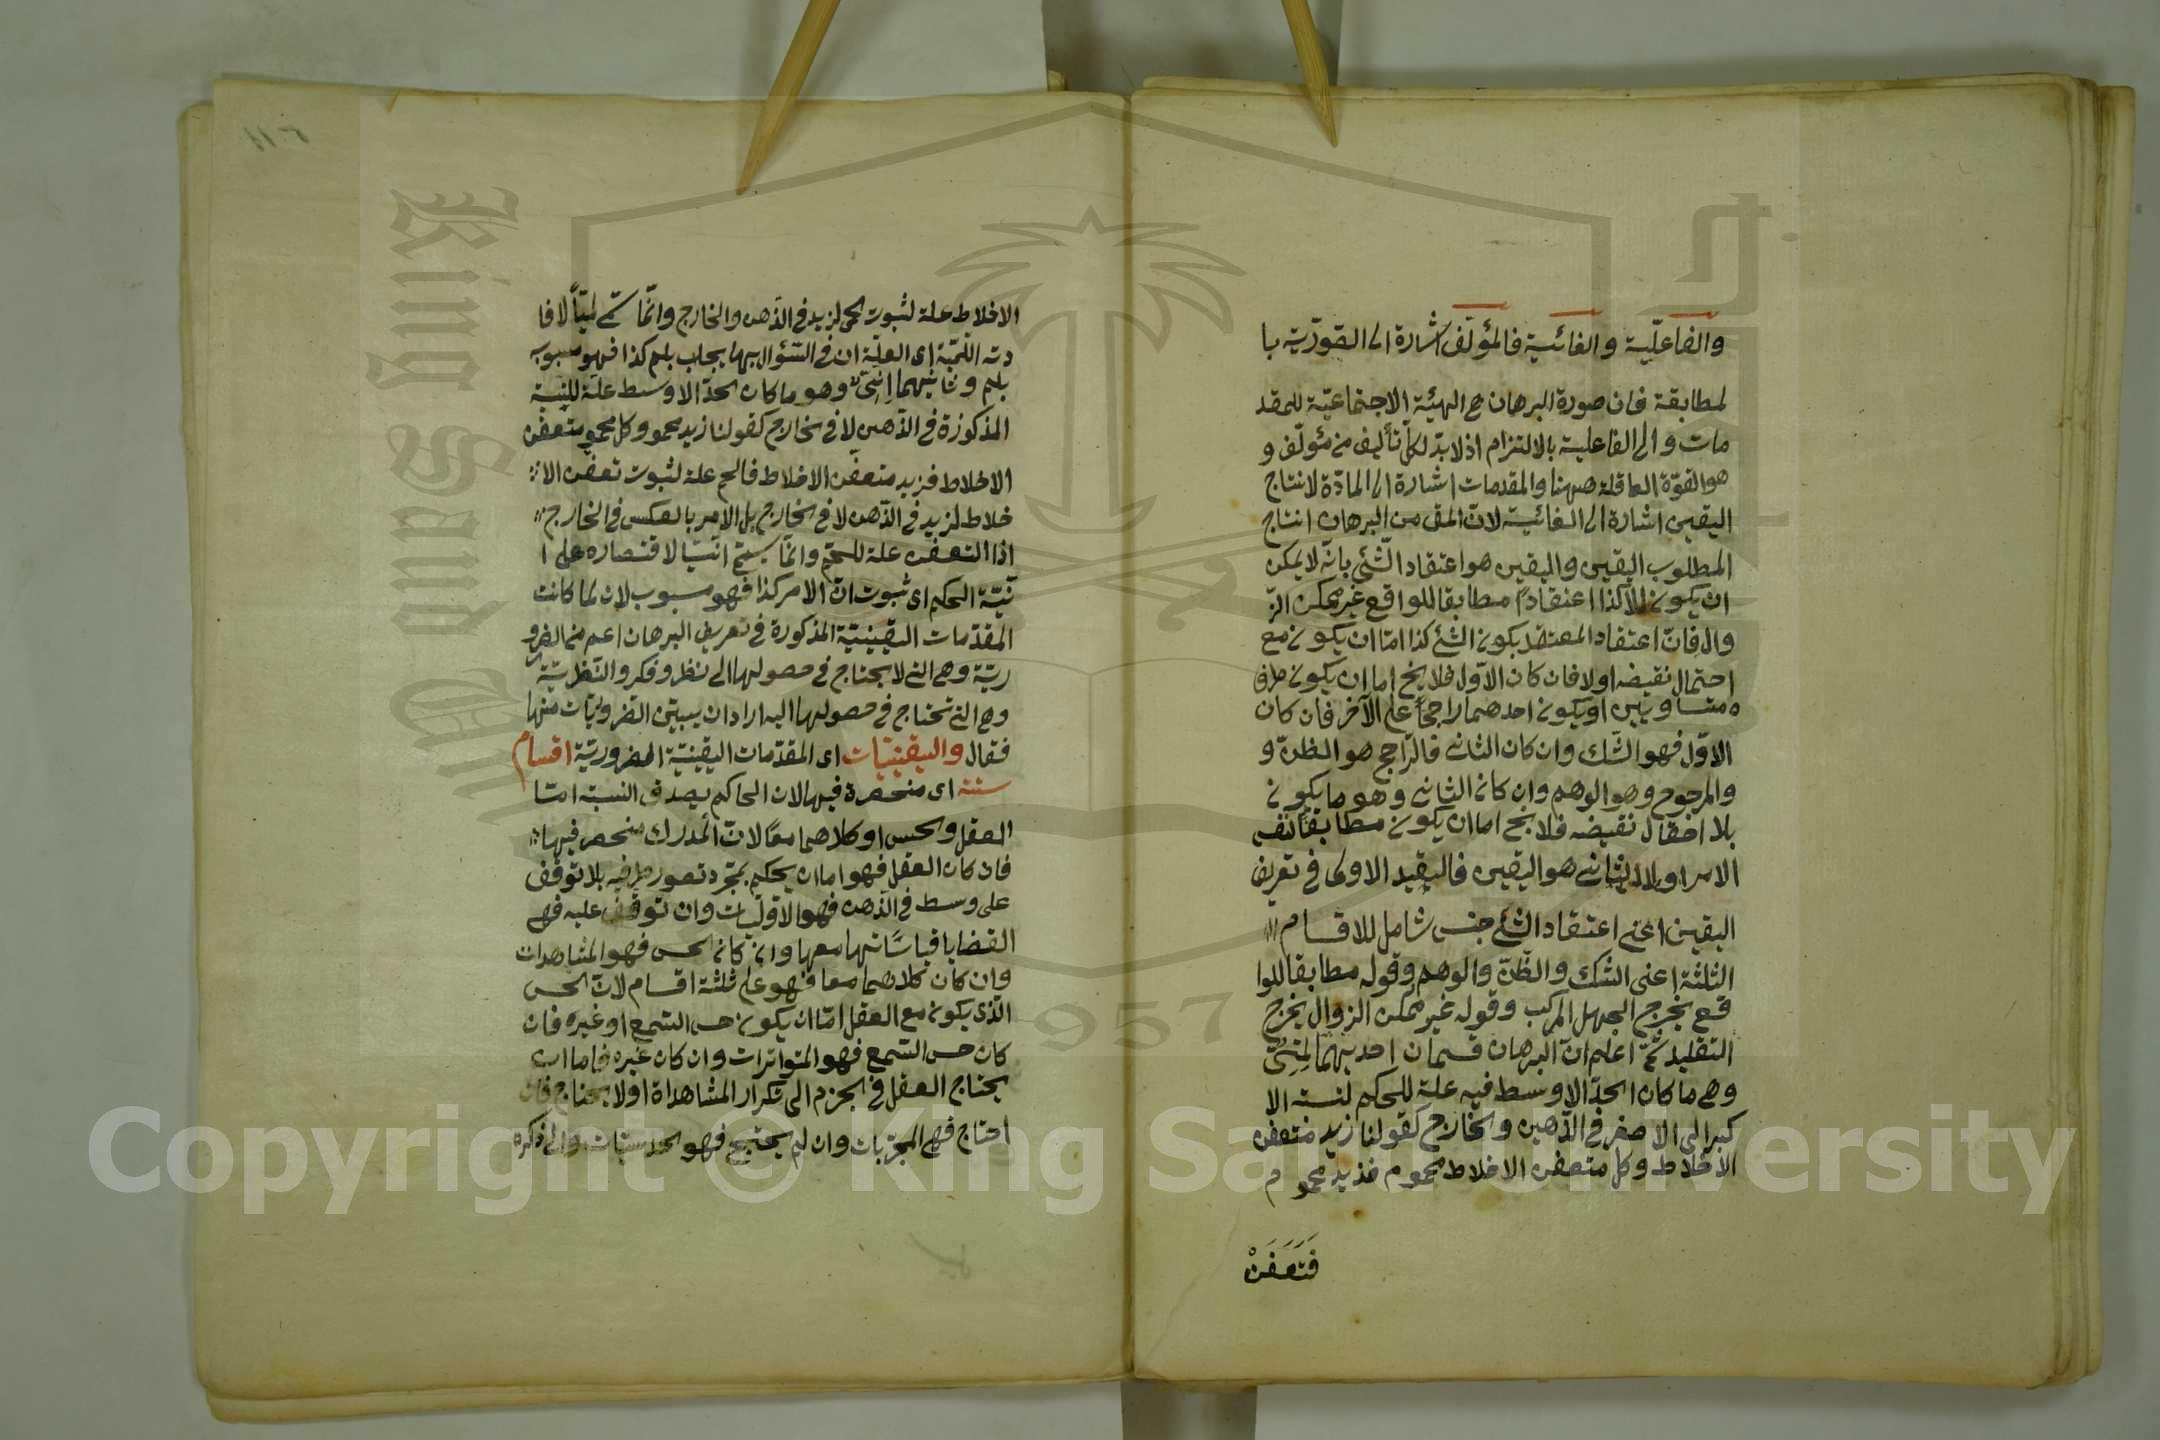 والفاعليّة والغائية فالمؤلّف اشارة الى الصوريّة با
لمطابقة فان صورة البرهان هى الهيئة الاجتماعيّة للمقد
مات والى الفاعلية بالالتزام اذ لابدّ لكل تأليف من مؤلّف و
هو القوّة العاقلة ههنا والمقدمات اشارة الى المادّة لانتاج
اليقين اشارة الى الغائية لانّ المقـ من البرهان انتاج
المطلوب اليقين واليقين هو اعتقاد الشئ بانّه لا يمكن
ان يكون الاّ كذا اعتقادًا مطابقا للواقع غير ممكن الز
وال فانّ اعتقاد المعتقد بكون الشئ كذا امّا ان يكون مع
احتمال نقيضه اولا فان كان الاوّل فلا يخ اما ان يكون طرفا
ه متساويين او يكون احدهما راجحًا على الآخر فان كان
الاوّل فهو الشّك وان كان الثانى فالرّاجح هو الظنّ و
والمرجوح وهو الوهم وان كان الثانى وهو ما يكون
بلا احتمال نقيضه فلا يخ اما ان يكون مطابقا لنفـ
الامر اولا الثانى هو اليقين فالقيد الاول فى تعريف
اليقين اعنى اعتقاد الشئ جنس شامل للاقسام
الثلثة اعنى الشك والظّنّ والوهم وقوله مطابقا للوا
قع يخرج الجهل المركب وقوله غير ممكن الزوال يخرج
التقليد ثمّ اعلم انّ البرهان قسمان احديهما لمّىّ
وهى ما كان الحدّ الاوسط فيه علة للحكم لنسبة الا
كبر الى الاصغر فى الذّهن والخارج كقولنا زيد متعفن
الاخلاط وكل متعفن الاخلاط محموم فزيد محموم
فتعفن
الاخلاط علة لثبوت الحمى لزيد فى الذّهن والخارج وانّما سمّى لميّاً لافا
دته اللّمّيّة اى العلّة ان فى السّؤال بها يجاب بلم كذا فهو منسوب
بلم وثانيهما اِنّىّ وهو ما كان الحدّ الاوسط علّة للنسبة
المذكورة فى الذّهن لا فى الخارج كقولنا زيد محمو وكل محمو متعفن
الاخلاط فزيد متعفن الاخلاط فالحمى علة لثبوت تعفن الا
خلاط لزيد فى الذّهن لا فى الخارج بل الامر بالعكس فى الخارج
اذ التعفن علة للحمّى وانّما يسمّى انّيّا لاقتصاره على ا
نّيّة الحكم اى ثبوت انّ الامر كذا فهو منسوب لان لما كانت
المقدّمات اليقينيّة المذكورة فى تعريف البرهان اعم من الضرو
ريّة وهى التى لا يحتاج فى حصولها الى نظر وفكر والنّظريّة
وهى التى تحتاج فى حصولها اليه اراد ان يبيّن الضروريّات منها
فقال واليقينيّات اى المقدّمات اليقينيّة الضروريّة اقسام
ستة اى منحصرة فيها لان الحاكم بصدق النسبة امّا
العقل والحس او كلاهما معًا لانّ المدرك منحصر فيها
فان كان العقل فهو اما ان يحكم بمجرّد تصور طرفيه بلا توقّف
على وسط فى الذّهن فهو الاوّليات وان توقّف عليه فهى
القضايا قياساتها معها وان كان الحس فهو المشاهدات
وان كان كلاهما معا فهو على ثلثة اقسام لانّ الحس
الّذى يكون مع العقل امّا ان يكون حس السّمع او غيره فان
كان حس السّمع فهو المتواترات وان كان غيره فاما ان
يحتاج العقل فى الجزم الى تكرار المشاهداة اولا يحتاج فان
احتاج فهى المجرّبات وان لم يحتج فهو الحدسيّات والى ذكره
Copyright © King Saud University
King Saud University
1957